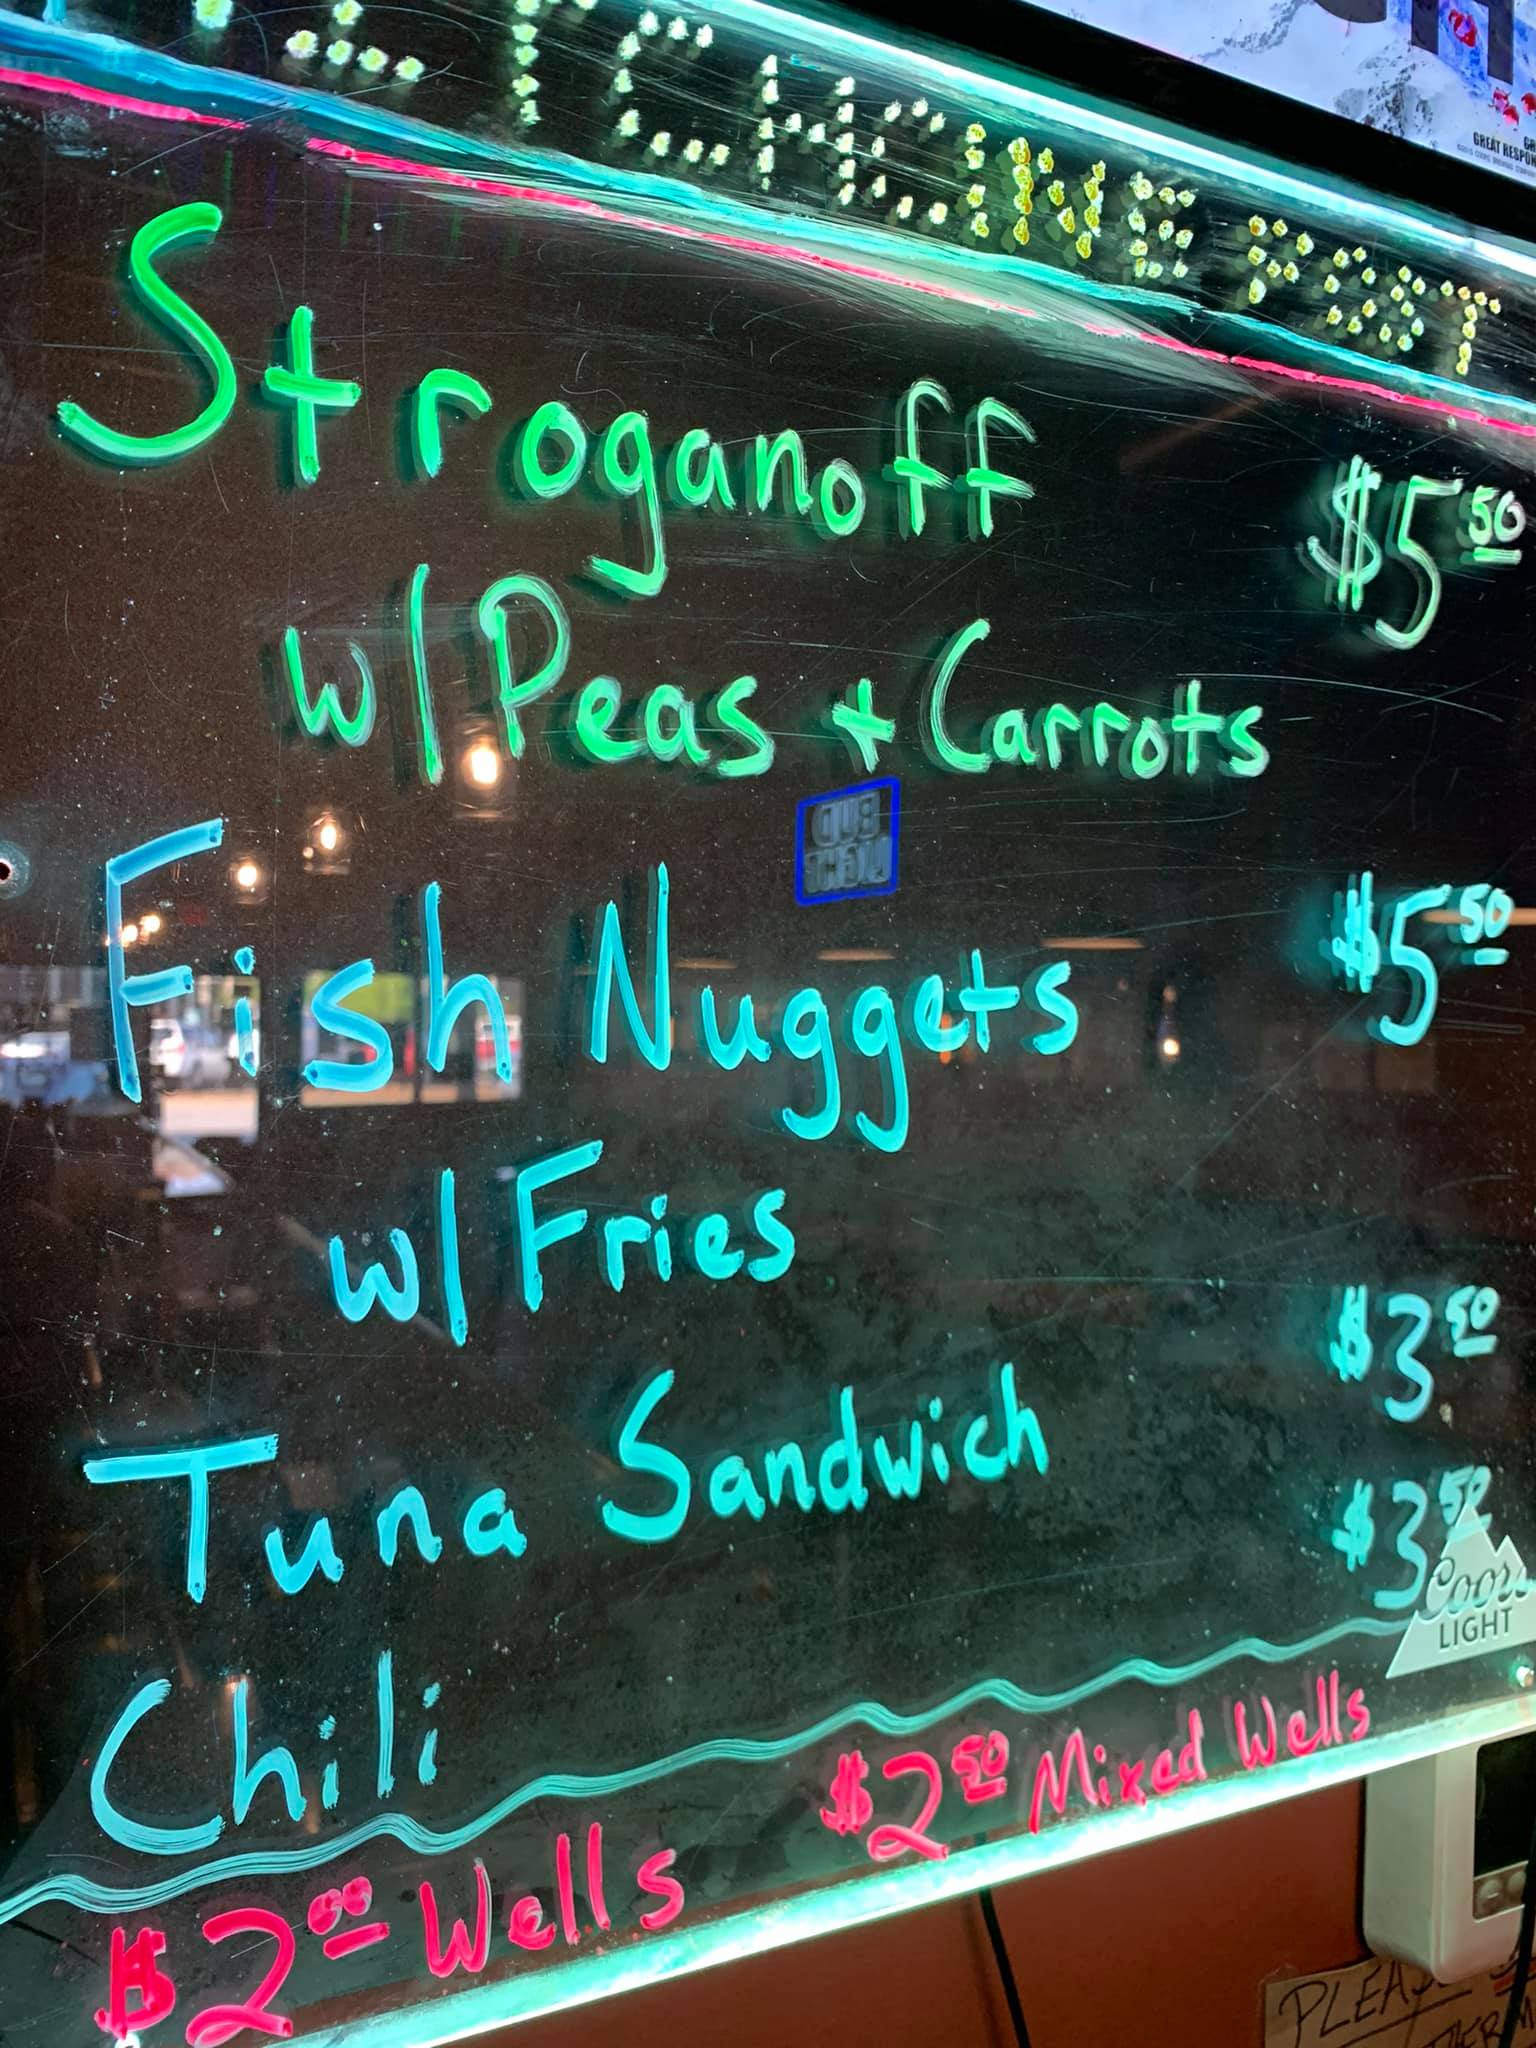 GREAT RESPON
Stroganoff $5 50
w/ Peas + Carrots
BUD
LIGHT
Fish Nuggets $5 50
w/ Fries
Tuna Sandwich $3 50
Chili $3 50
Coors
LIGHT
$2 00 Wells $2 50 Mixed Wells
PLEASE